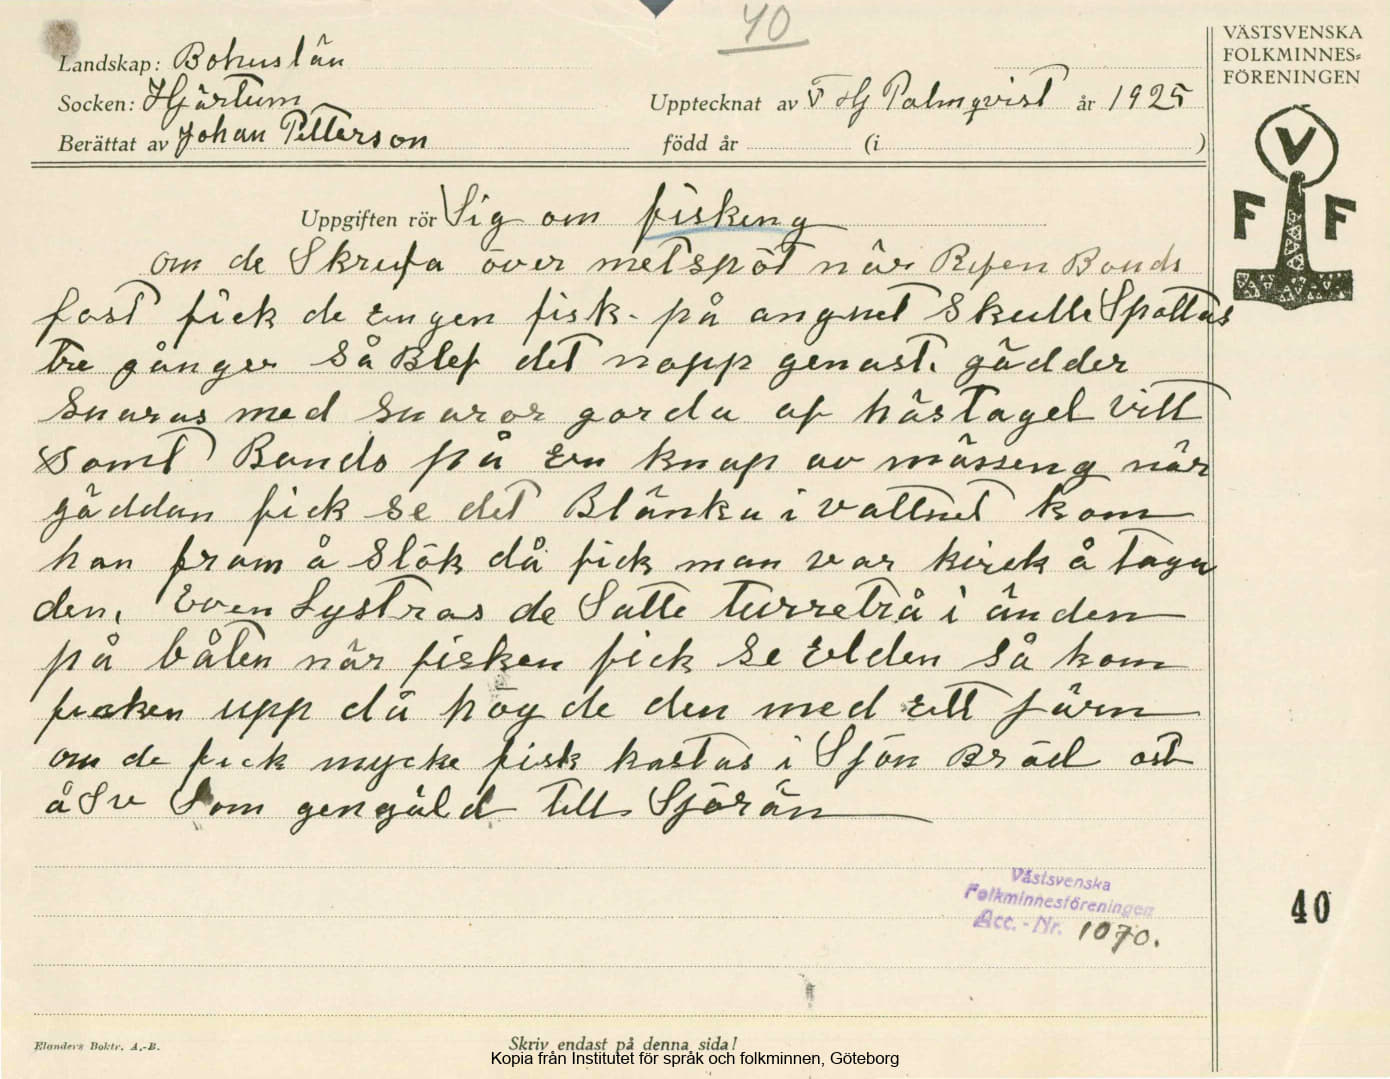 40
VÄSTSVENSKA
FOLKMINNES=
FÖRENINGEN
Landskap: Bohuslän
Socken: Hjärtum
Upptecknat av Hj Palmqvist år 1925
Berättat av Johan Petterson
född år (i )
V
F F
Uppgiften rör Sig om fiskeng
om de Skrefa över metspöt när Refen Bands
fast fick de Engen fisk. på angnet Skulle Spottas
tre gånger Så Blef det napp genast. gädder
Snaras med Snaror gorda af hästagel vitt
Samt Bands på En knap av mässeng när
gäddan fick se det Blänka i vattnet kom
han fram å Stök då fick man var kvick å taga
den. Även Lystras de Satte turretrå i änden
på båten när fisken fick Se Elden så kom
fisken upp då hög de den med Ett järn
om de fick mycke fisk kastas i Sjön Bröd ost
å Sv Som gengäld till Sjörån
Västsvenska
Folkminnesföreningen
Acc. - Nr. 1070.
40
Elanders Boktr. A.-B.
Skriv endast på denna sida!
Kopia från Institutet för språk och folkminnen, Göteborg